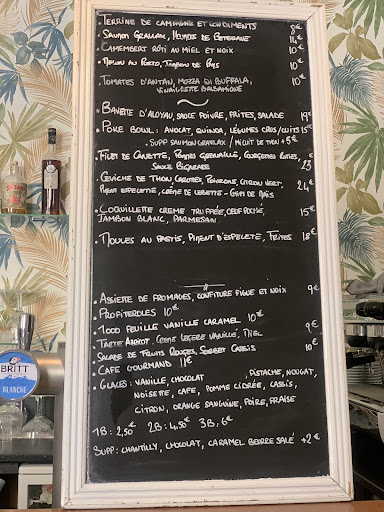 TERRINE DE CAMPAGNE ET CONDIMENTS 8€
• SAUMON GRAVLAX, HOUMOS DE BETTERAVE 14€
• CAMEMBERT RÔTI AU MIEL ET NOIX 10€
• MELON AU PORTO, JAMBON DE PAYS 10€
TOMATES D'ANTAN, MOZZA DI BUFFALA, 10€
VINAIGRETTE BALSAMIQUE
• BAVETTE D'ALOYAU, SAUCE POIVRE, FRITES, SALADE 19€
• POKE BOWL: AVOCAT, QUINOA, LÉGUMES CRUS/CUITS 15€
. SUPP SAUMON GRAVLAX / MICUIT DE THON +5€
• FILET DE CANETTE, POMMES GRENAILLE, COURGETTES RÔTIES,
SAUCE BIGARADE 23
• CEVICHE DE THON, CAROTTES, POIVRONS, CITRON VERT,
PIMENT ESPELETTE, CRÈME DE CREVETTE - GRAINS DE MAÏS 24€
• COQUILLETTE CREME TRUFFÉE, ŒUF POCHÉ, 15€
JAMBON BLANC, PARMESAN
• MOULES AU PASTIS, PIMENT D'ESPELETTE, FRITES 18€
• ASSIETTE DE FROMAGES, CONFITURE FIGUE ET NOIX 9€
• PROFITEROLES 10€
• 1000 FEUILLE VANILLE CARAMEL 10€
• TARTE ABRICOT, CRÈME LÉGÈRE VANILLE, MIEL 9€
• SALADE DE FRUITS ROUGES, SORBET CASSIS 10€
• CAFÉ GOURMAND 11€
• GLACES: VANILLE, CHOCOLAT , PISTACHE, NOUGAT,
NOISETTE, CAFÉ, POMME CIDRÉE, CASSIS,
CITRON, ORANGE SANGUINE, POIRE, FRAISE
1B: 2,50€ 2B: 4,50€ 3B, 6€
SUPP: CHANTILLY, CHOCOLAT, CARAMEL BEURRE SALÉ +2€
BRITT
BLANCHE